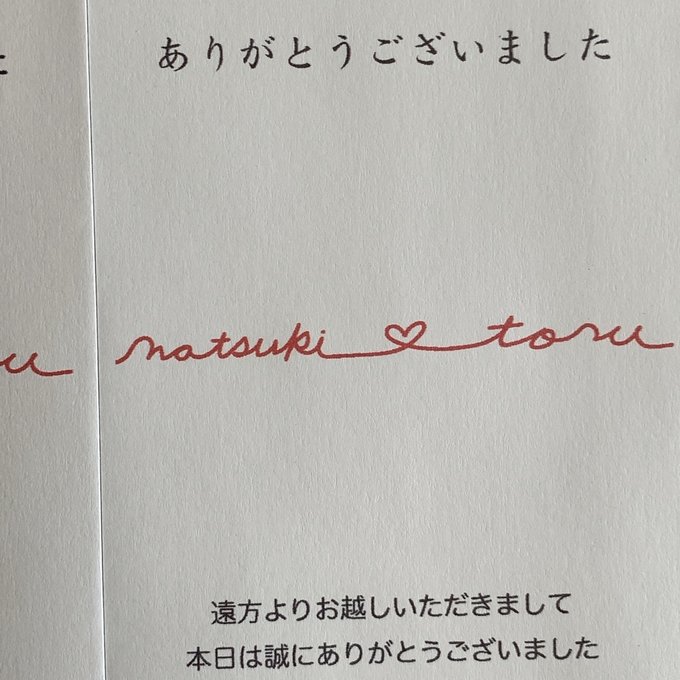 ありがとうございました
natsuki ♡ toru
遠方よりお越しいただきまして
本日は誠にありがとうございました